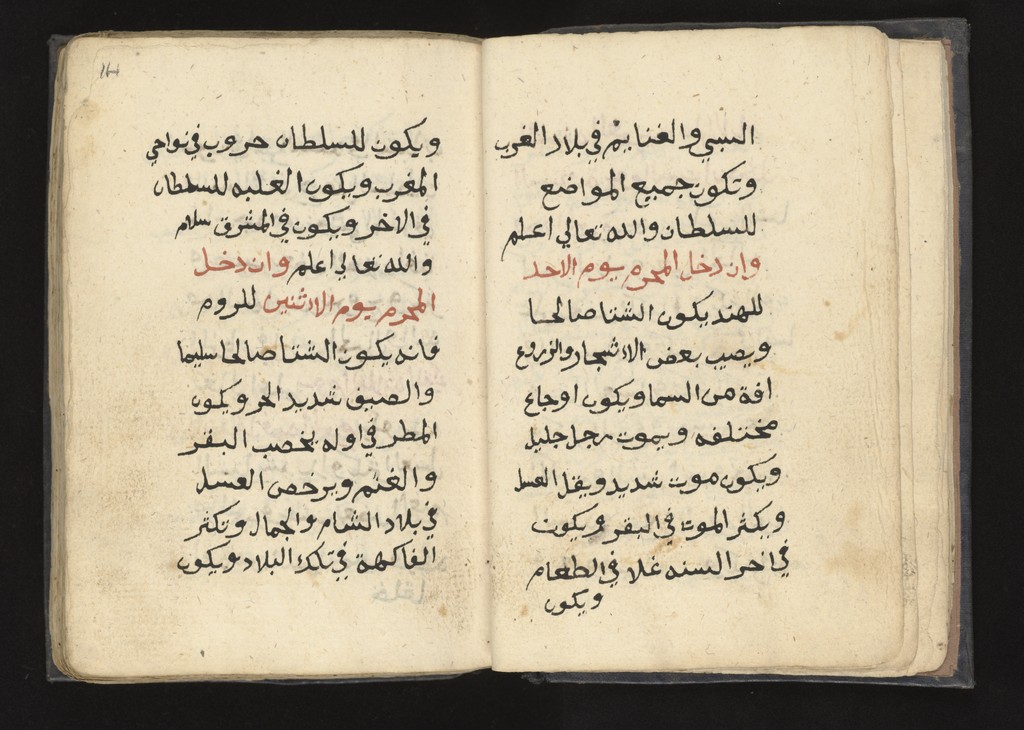 السبي والغنايم في بلاد الغرب
وتكون جميع المواضع
للسلطان والله تعالي اعلم
وان دخل المحرم يوم الاحد
للهند يكون الشتا صالحا
ويصيب بعض الاشجار والزروع
افة من السما ويكون اوجاع
مختلفه ويموت رجل جليل
ويكون موت شديد ويقل العسل
ويكثر الموت في البقر ويكون
في اخر السنه غلا في الطعام
ويكون
ويكون للسلطان حروب في نواحي
المغرب ويكون الغلبه للسلطان
في الاخر ويكون في المشرق سلام
والله تعالي اعلم وان دخل
المحرم يوم الاثنين للروم
فانه يكون الشتا صالحا سليما
والصيف شديد الحر ويكون
المطر في اوله يخصب البقر
والغنم ويرخص العسل
في بلاد الشام والجمال وتكثر
الفاكهة في تلك البلاد ويكون